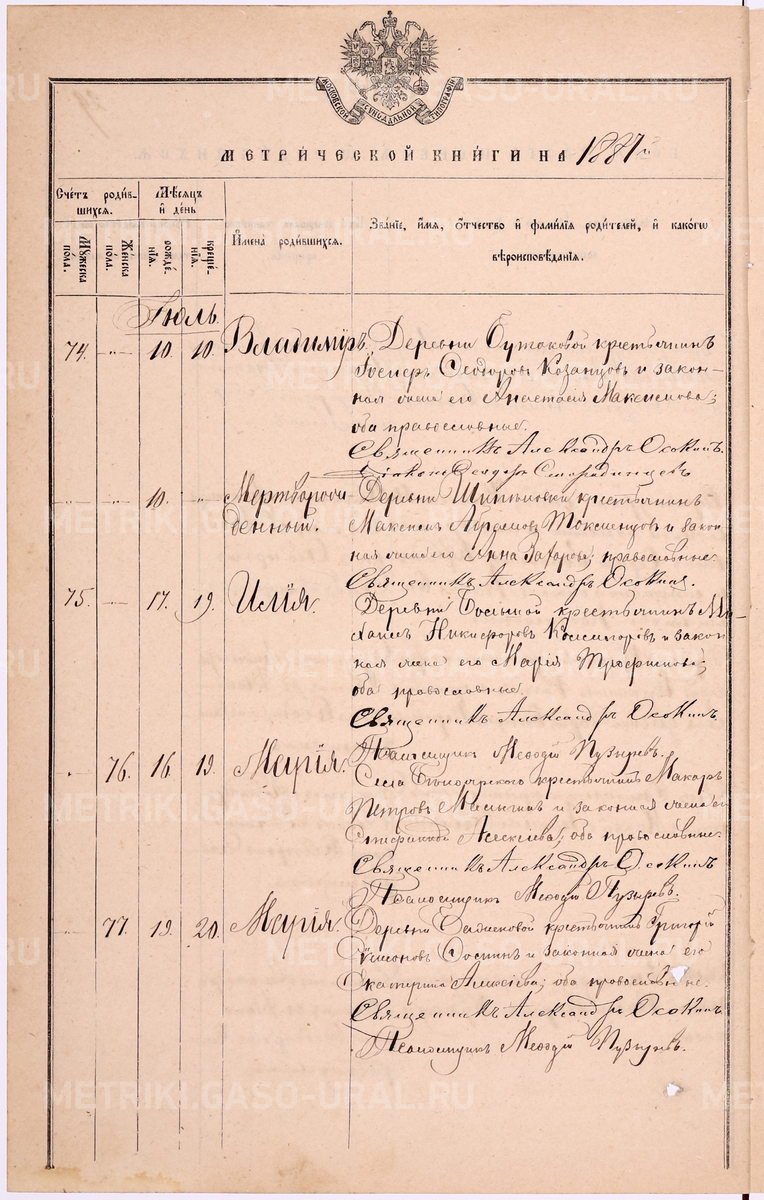 МОСКОВСКОЙ СѴНОДАЛЬНОЙ ТИПОГРАФІИ
МЕТРИ́ЧЕСКОЙ КНИ́ГИ НА 1887й
Сче́тъ роди́вшихся.
Мѣ́сяцъ и҆ де́нь
Мꙋ́жеска по́ла.
Же́нска по́ла.
рожде́нїѧ.
креще́нїѧ.
И҆мена̀ роди́вшихся.
Зва́нїе, и҆́мя, ѻ҆́тчество и҆ фами́лїѧ роди́телей, и҆ како́гѡ вѣроисповѣ́данїѧ.
Іюль.
74. -"- 10. 10. Владиміръ. Деревни Бутаковой крестьянинъ
Ѳеодоровъ Казанцовъ и закон-
ная жена его Анастасія Максимова;
оба православные.
Священникъ Александръ Осокинъ.
Діаконъ Ѳеодоръ Смородинцевъ
10. " Мертворож
денный. Деревни крестьянинъ
Максимъ и закон
ная жена его Анна Захарова; православные
Священникъ Александръ Осокинъ.
75. 17. 19. Илія. Деревни крестьянинъ Ми-
хаилъ Никифоровъ и закон
ная жена его Марія Трофимова;
оба православные.
Священникъ Александръ Осокинъ.
Псаломщикъ Меѳодій Пузыревъ.
76. 16. 19. Марія. Села крестьянинъ Макаръ
Петровъ и законная жена его
Алексѣева; оба православные.
Священникъ Александръ Осокинъ
Псаломщикъ Меѳодій Пузыревъ.
77. 19. 20. Марія. Деревни крестьянинъ Григорій
и законная жена его
Екатерина Алексѣева; оба православные.
Священникъ Александръ Осокинъ
Псаломщикъ Меѳодій Пузыревъ.
METRIKI.GASO-URAL.RU